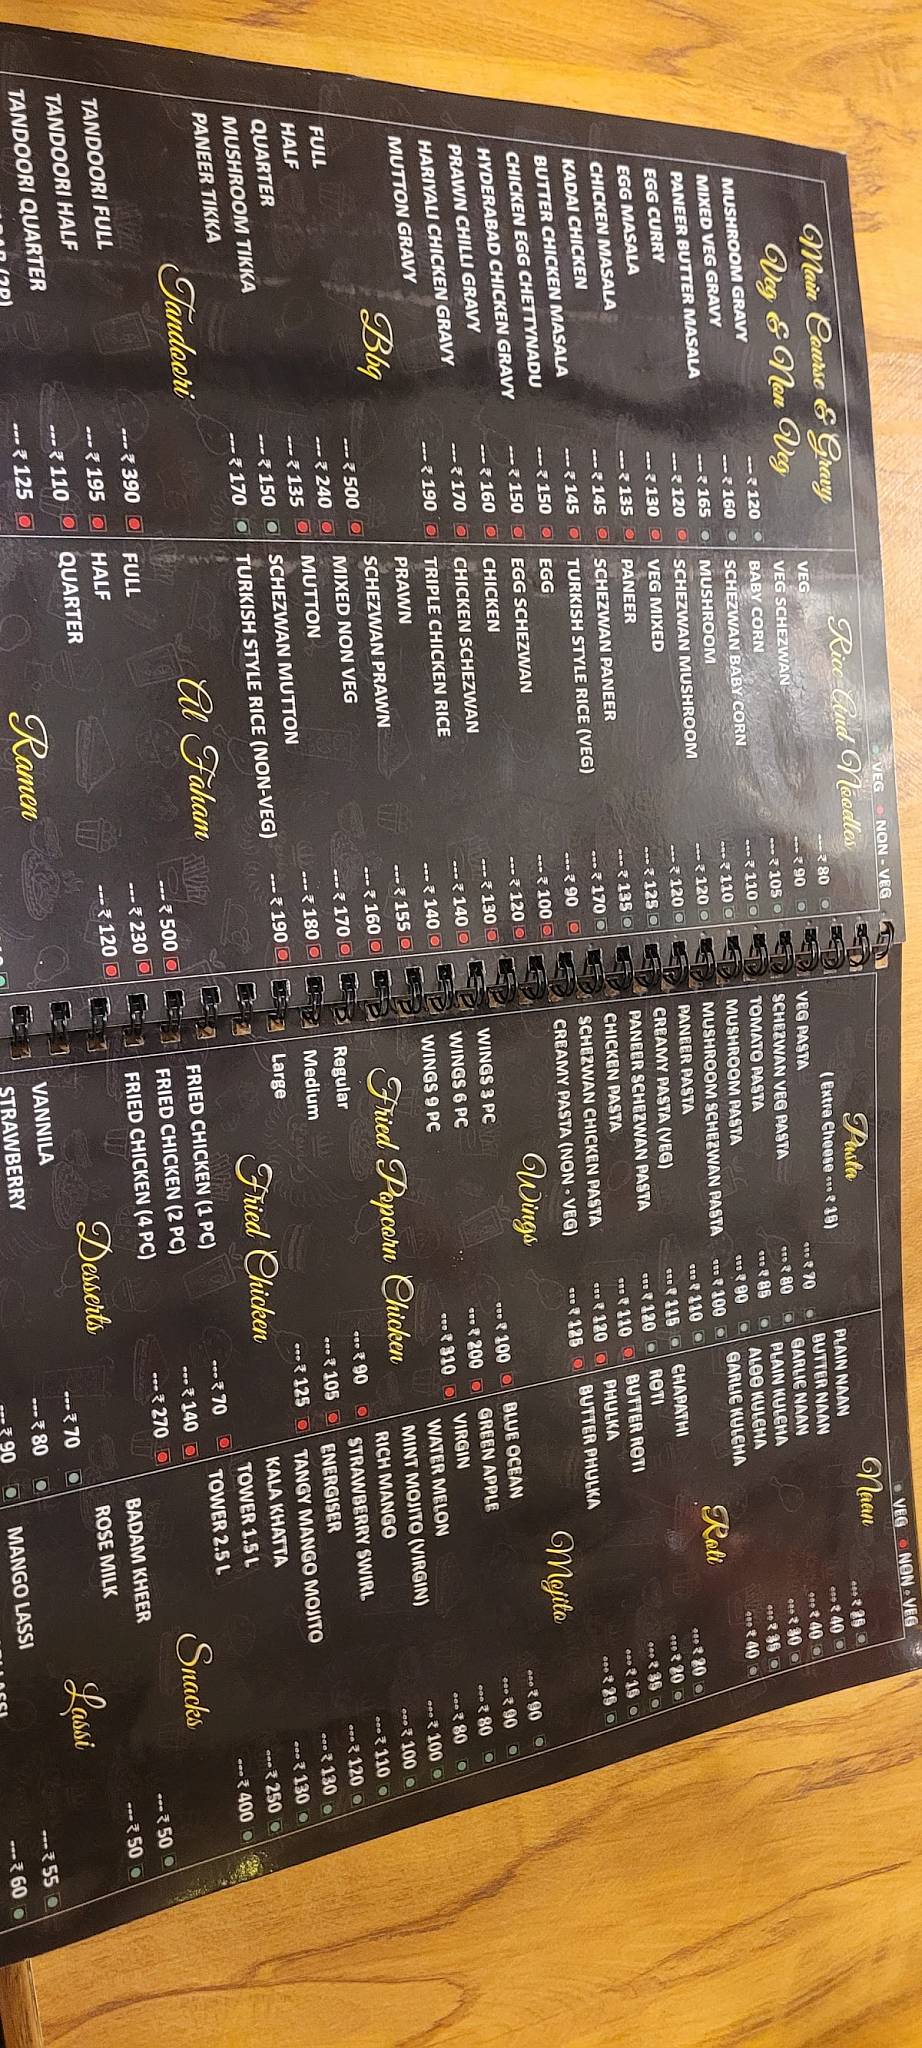 VEG NON - VEG
Main Course & Gravy
Veg & Non Veg
MUSHROOM GRAVY --- ₹ 120
MIXED VEG GRAVY --- ₹ 160
PANEER BUTTER MASALA --- ₹ 165
EGG CURRY --- ₹ 120
EGG MASALA --- ₹ 130
CHICKEN MASALA --- ₹ 135
KADAI CHICKEN --- ₹ 145
BUTTER CHICKEN MASALA --- ₹ 145
CHICKEN EGG CHETTYNADU --- ₹ 150
HYDERABAD CHICKEN GRAVY --- ₹ 150
PRAWN CHILLI GRAVY --- ₹ 160
HARIYALI CHICKEN GRAVY --- ₹ 170
MUTTON GRAVY --- ₹ 190
Bbq
FULL --- ₹ 500
HALF --- ₹ 240
QUARTER --- ₹ 135
MUSHROOM TIKKA --- ₹ 150
PANEER TIKKA --- ₹ 170
Tandoori
TANDOORI FULL --- ₹ 390
TANDOORI HALF --- ₹ 195
TANDOORI QUARTER --- ₹ 110
(2P) --- ₹ 125
Rice And Noodles
VEG --- ₹ 80
VEG SCHEZWAN --- ₹ 90
BABY CORN --- ₹ 105
SCHEZWAN BABY CORN --- ₹ 110
MUSHROOM --- ₹ 110
SCHEZWAN MUSHROOM --- ₹ 120
VEG MIXED --- ₹ 120
PANEER --- ₹ 125
SCHEZWAN PANEER --- ₹ 135
TURKISH STYLE RICE (VEG) --- ₹ 170
EGG --- ₹ 90
EGG SCHEZWAN --- ₹ 100
CHICKEN --- ₹ 120
CHICKEN SCHEZWAN --- ₹ 130
TRIPLE CHICKEN RICE --- ₹ 140
PRAWN --- ₹ 140
SCHEZWAN PRAWN --- ₹ 155
MIXED NON VEG --- ₹ 160
MUTTON --- ₹ 170
SCHEZWAN MUTTON --- ₹ 180
TURKISH STYLE RICE (NON-VEG) --- ₹ 190
Al Faham
FULL --- ₹ 500
HALF --- ₹ 230
QUARTER --- ₹ 120
Ramen
VEG NON - VEG
Pasta
( Extra Cheese --- ₹ 15)
VEG PASTA --- ₹ 70
SCHEZWAN VEG PASTA --- ₹ 80
TOMATO PASTA --- ₹ 85
MUSHROOM PASTA --- ₹ 90
MUSHROOM SCHEZWAN PASTA --- ₹ 100
PANEER PASTA --- ₹ 110
CREAMY PASTA (VEG) --- ₹ 115
PANEER SCHEZWAN PASTA --- ₹ 120
CHICKEN PASTA --- ₹ 110
SCHEZWAN CHICKEN PASTA --- ₹ 120
CREAMY PASTA (NON - VEG) --- ₹ 125
Wings
WINGS 3 PC --- ₹ 100
WINGS 6 PC --- ₹ 200
WINGS 9 PC --- ₹ 310
Fried Popcorn Chicken
Regular --- ₹ 90
Medium --- ₹ 105
Large --- ₹ 125
Fried Chicken
FRIED CHICKEN (1 PC) --- ₹ 70
FRIED CHICKEN (2 PC) --- ₹ 140
FRIED CHICKEN (4 PC) --- ₹ 270
Desserts
VANNILA --- ₹ 70
STRAWBERRY --- ₹ 80
--- ₹ 90
Naan
PLAIN NAAN --- ₹ 25
BUTTER NAAN --- ₹ 40
GARLIC NAAN --- ₹ 40
PLAIN KULCHA --- ₹ 30
ALOO KULCHA --- ₹ 35
GARLIC KULCHA --- ₹ 40
Roti
CHAPATHI --- ₹ 20
ROTI --- ₹ 20
BUTTER ROTI --- ₹ 35
PHULKA --- ₹ 15
BUTTER PHULKA --- ₹ 25
Mojito
BLUE OCEAN --- ₹ 90
GREEN APPLE --- ₹ 90
VIRGIN --- ₹ 80
WATER MELON --- ₹ 80
MINT MOJITO (VIRGIN) --- ₹ 100
RICH MANGO --- ₹ 100
STRAWBERRY SWIRL --- ₹ 110
ENERGISER --- ₹ 120
TANGY MANGO MOJITO --- ₹ 130
KALA KHATTA --- ₹ 130
TOWER 1.5 L --- ₹ 250
TOWER 2.5 L --- ₹ 400
Snacks
BADAM KHEER --- ₹ 50
ROSE MILK --- ₹ 50
Lassi
MANGO LASSI --- ₹ 55
--- ₹ 60